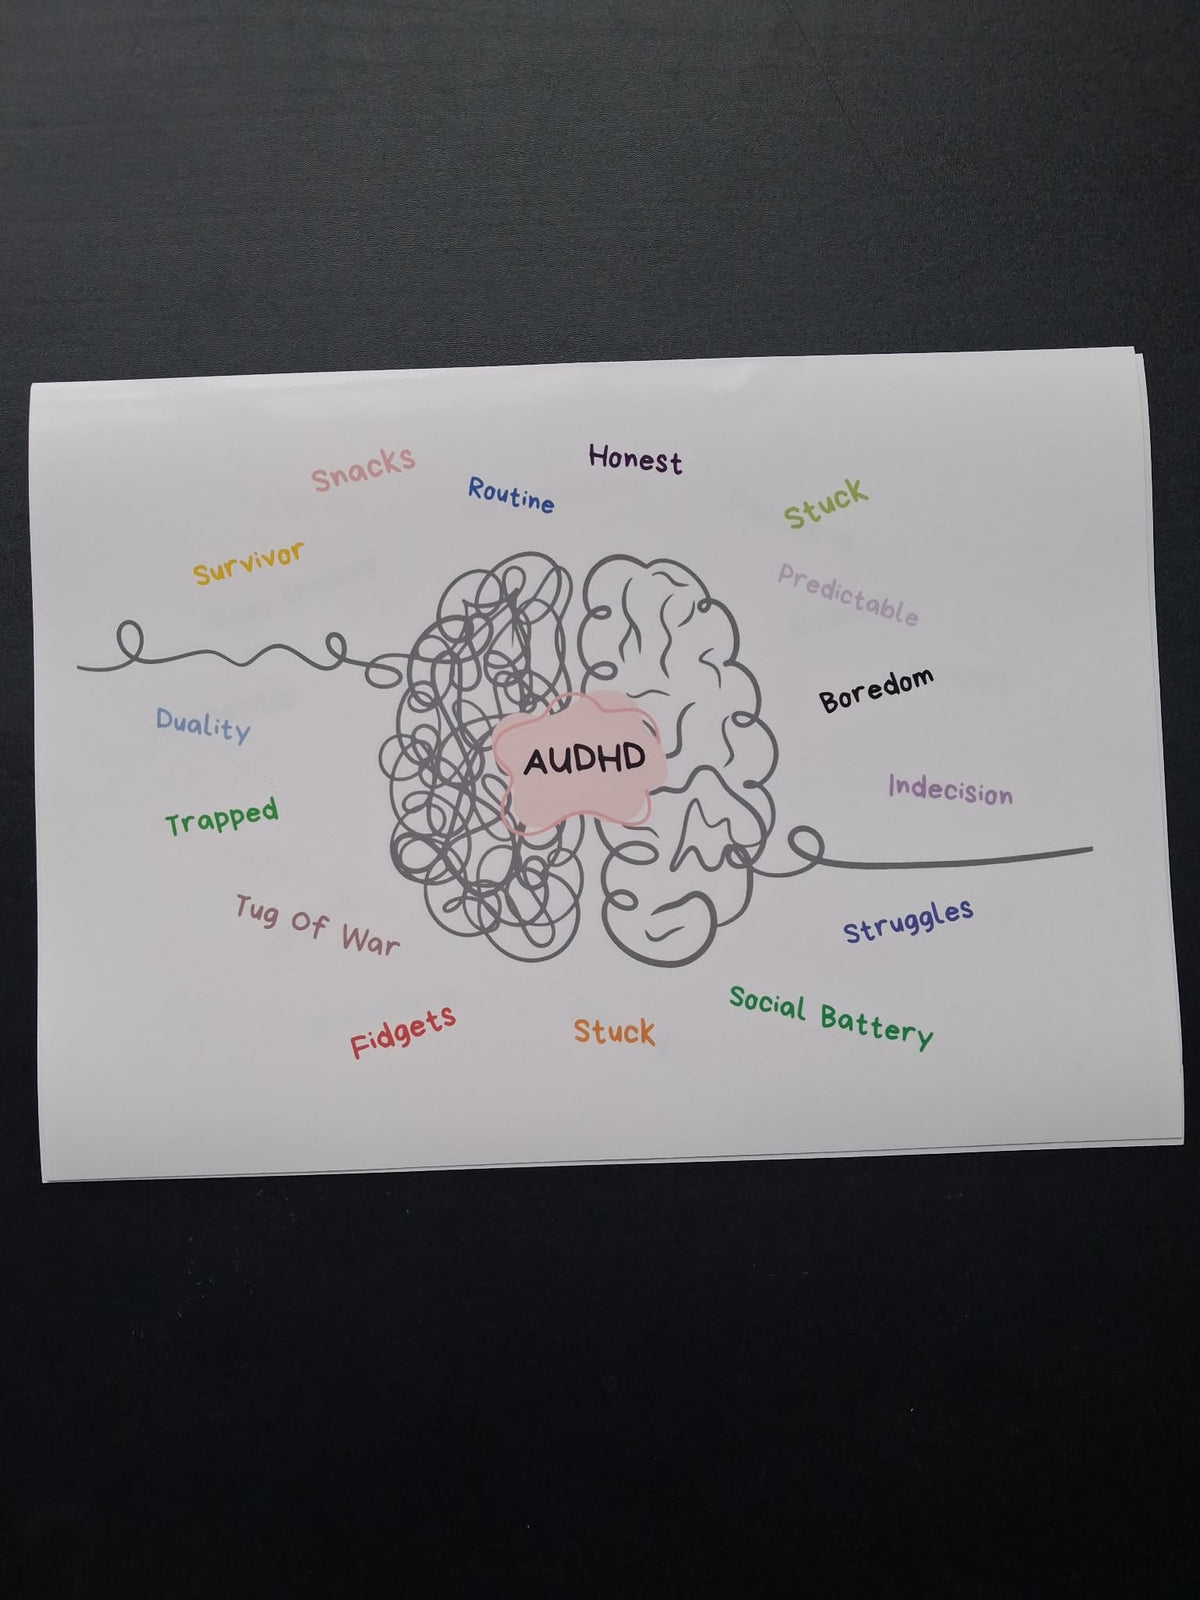 Snacks
Honest
Routine
Stuck
Survivor
Predictable
Boredom
Duality
AUDHD
Indecision
Trapped
Tug Of War
Struggles
Social Battery
Fidgets
Stuck